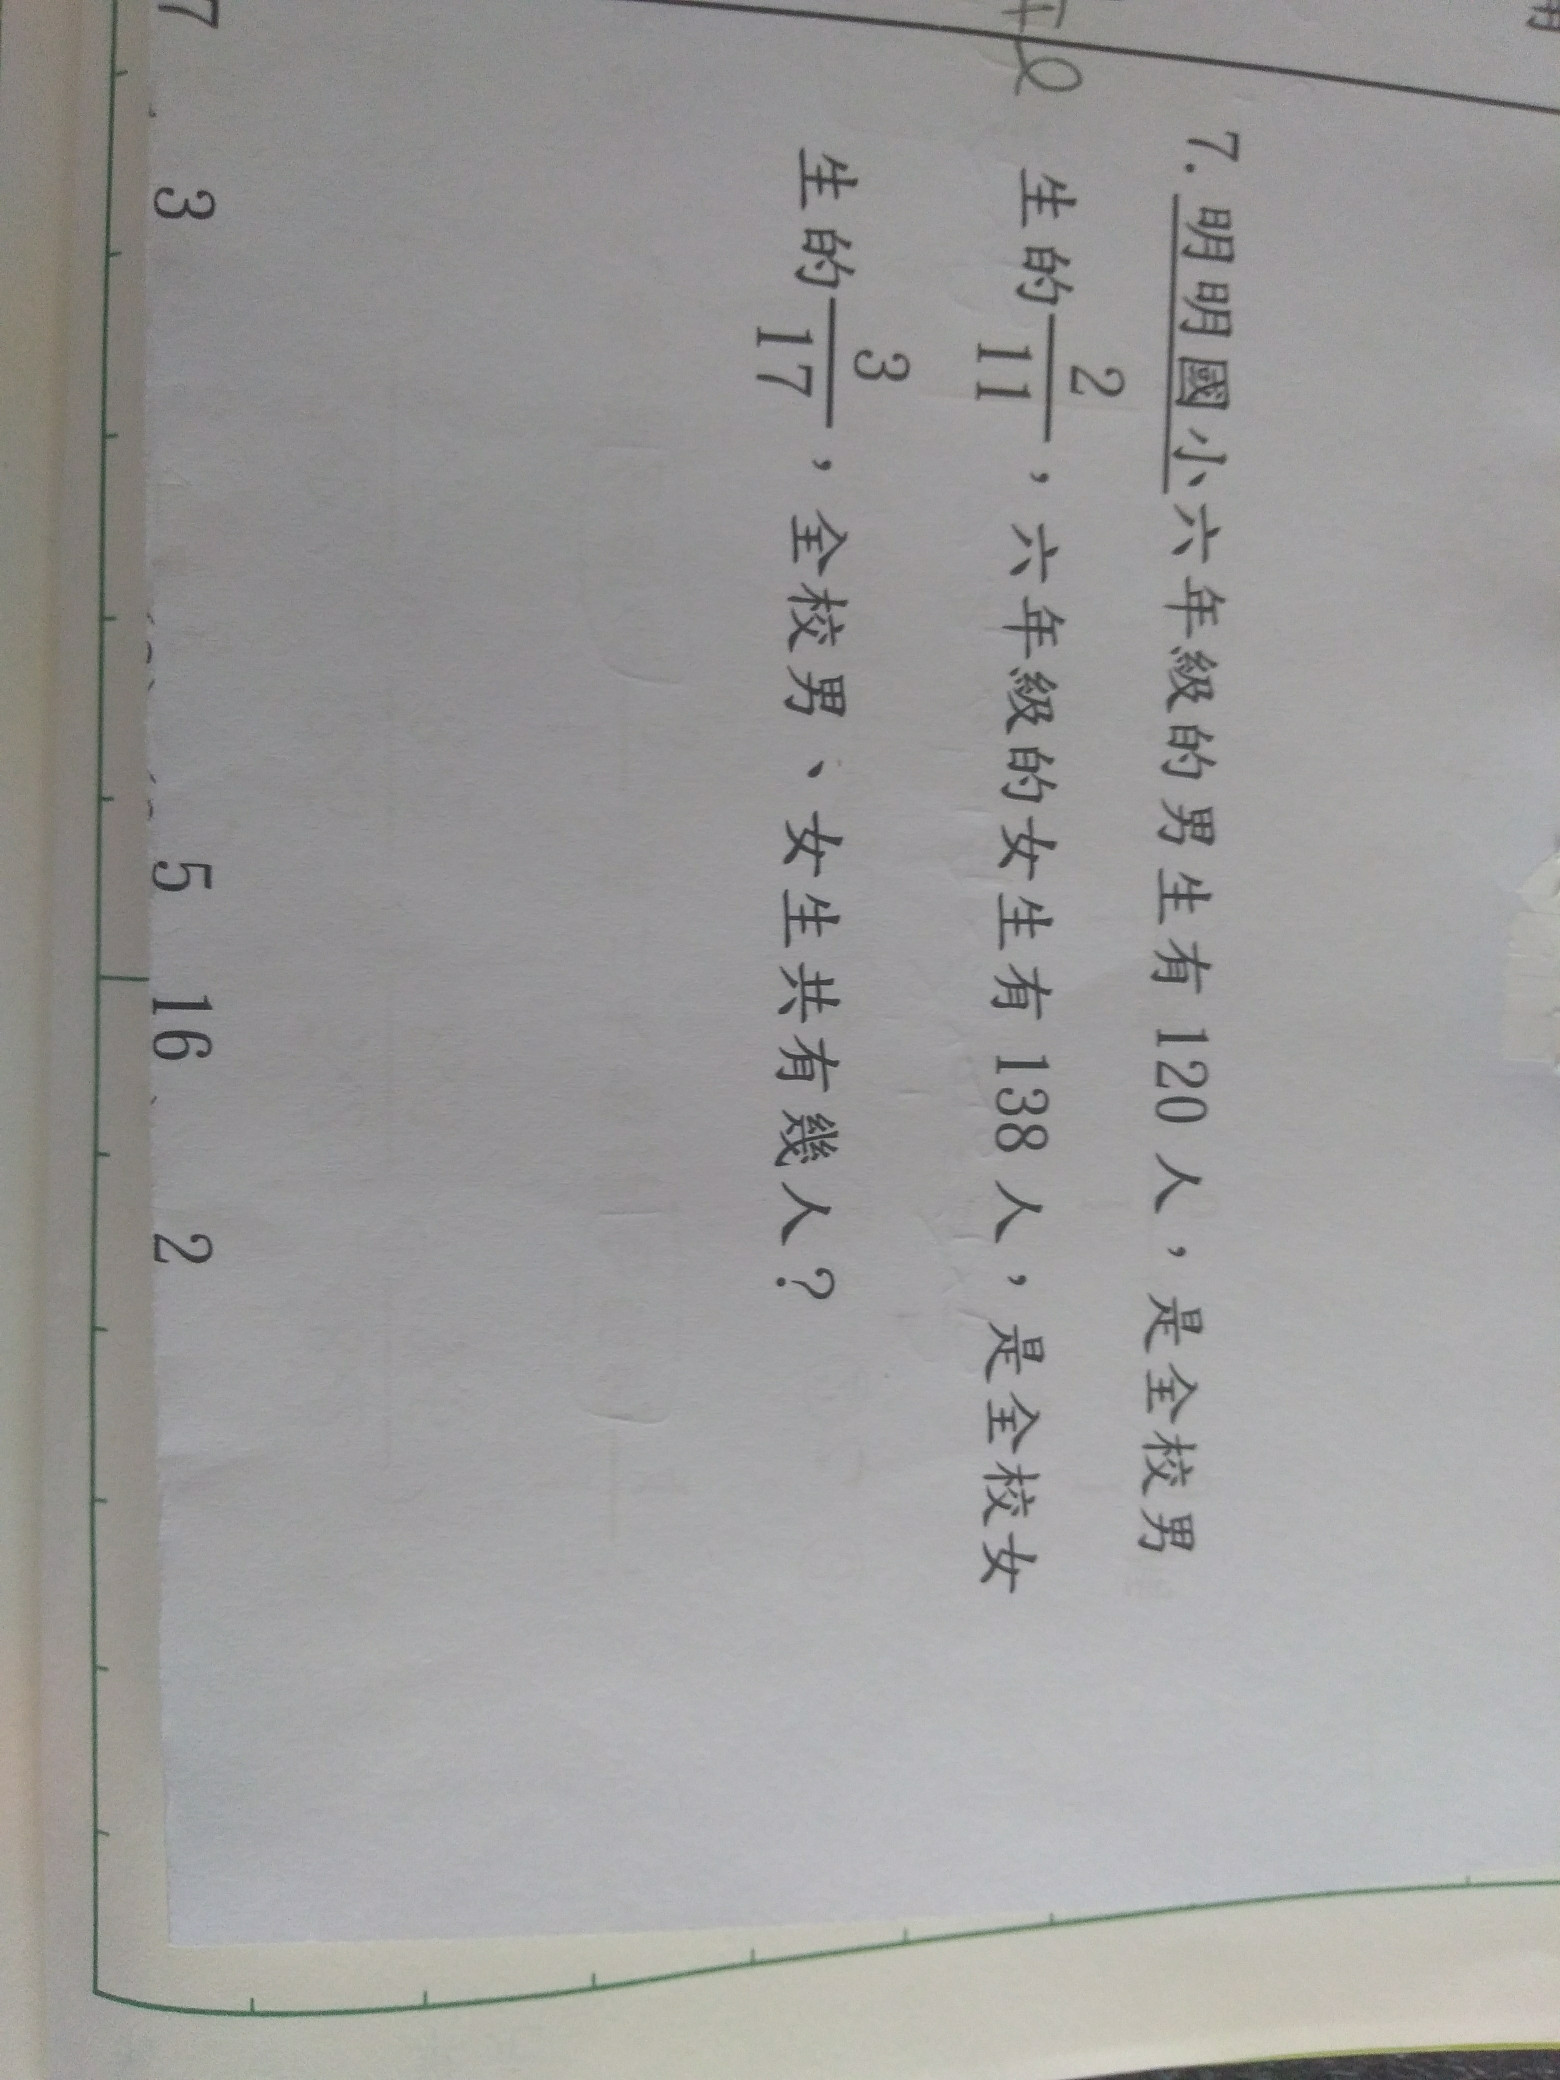 7. 明明國小六年級的男生有 120 人，是全校男
生的 2/11 ，六年級的女生有 138 人，是全校女
生的 3/17 ，全校男、女生共有幾人？
7 3 5 16 2